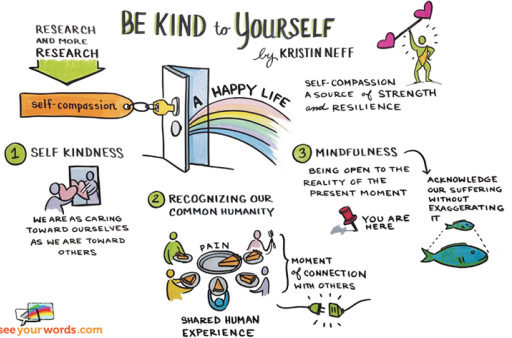 BE KIND to YOURSELF
by KRISTIN NEFF
RESEARCH
AND MORE
RESEARCH
self-compassion
A HAPPY LIFE
SELF-COMPASSION
A SOURCE of STRENGTH
and RESILIENCE
1 SELF KINDNESS
WE ARE AS CARING
TOWARD OURSELVES
AS WE ARE TOWARD
OTHERS
2 RECOGNIZING OUR
COMMON HUMANITY
PAIN
MOMENT
OF CONNECTION
WITH OTHERS
SHARED HUMAN
EXPERIENCE
3 MINDFULNESS
BEING OPEN TO THE
REALITY OF THE
PRESENT MOMENT
YOU ARE
HERE
ACKNOWLEDGE
OUR SUFFERING
WITHOUT
EXAGGERATING
IT
seeyourwords.com